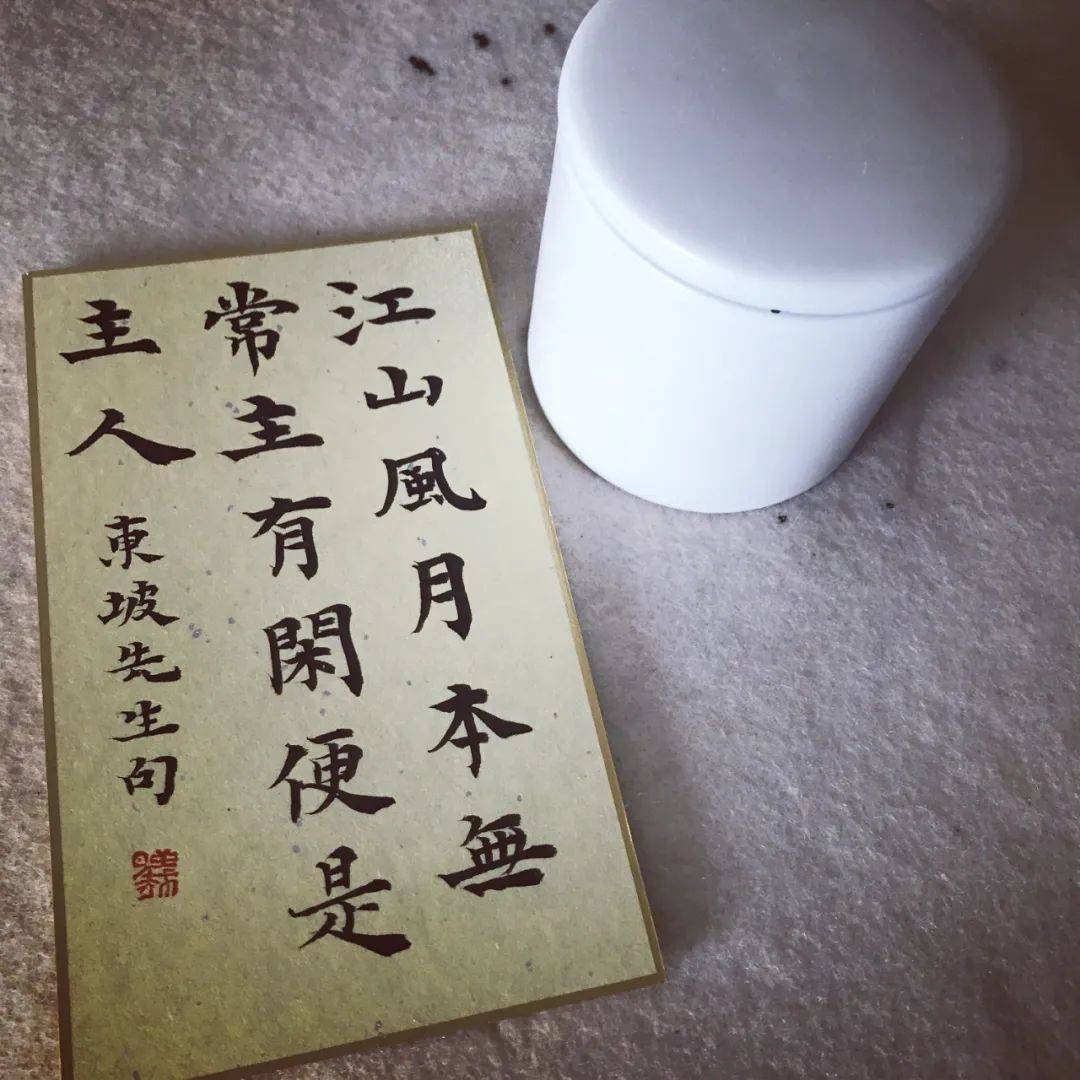 江山風月本無
常主有閑便是
主人
東坡先生句